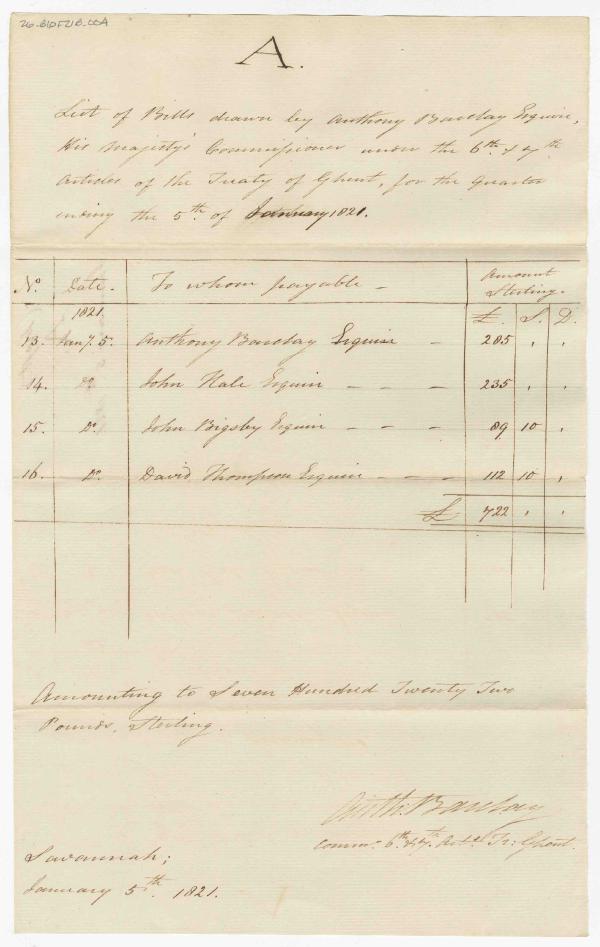 26-B1DF21B-00A
A.
List of Bills drawn by Anthony Barclay Esquire,
His Majesty's Commissioner under the 6th & 7th
Articles of the Treaty of Ghent, for the Quarter
ending the 5th of January 1821.
No. Date. To whom payable – Amount Sterling.
1821. £. S. D.
13. Jany. 5. Anthony Barclay Esquire – – 285 , ,
14. Do John Hale Esquire – – – 235 , ,
15. Do. John Bigsby Esquire – – – 89 10 ,
16. Do. David Thompson Esquire – – – 112 10 ,
£ 722 , ,
Amounting to Seven Hundred Twenty Two
Pounds, Sterling.
Anth: Barclay
Commr. 6th & 7th Arts. Tr: Ghent.
Savannah;
January 5th 1821.